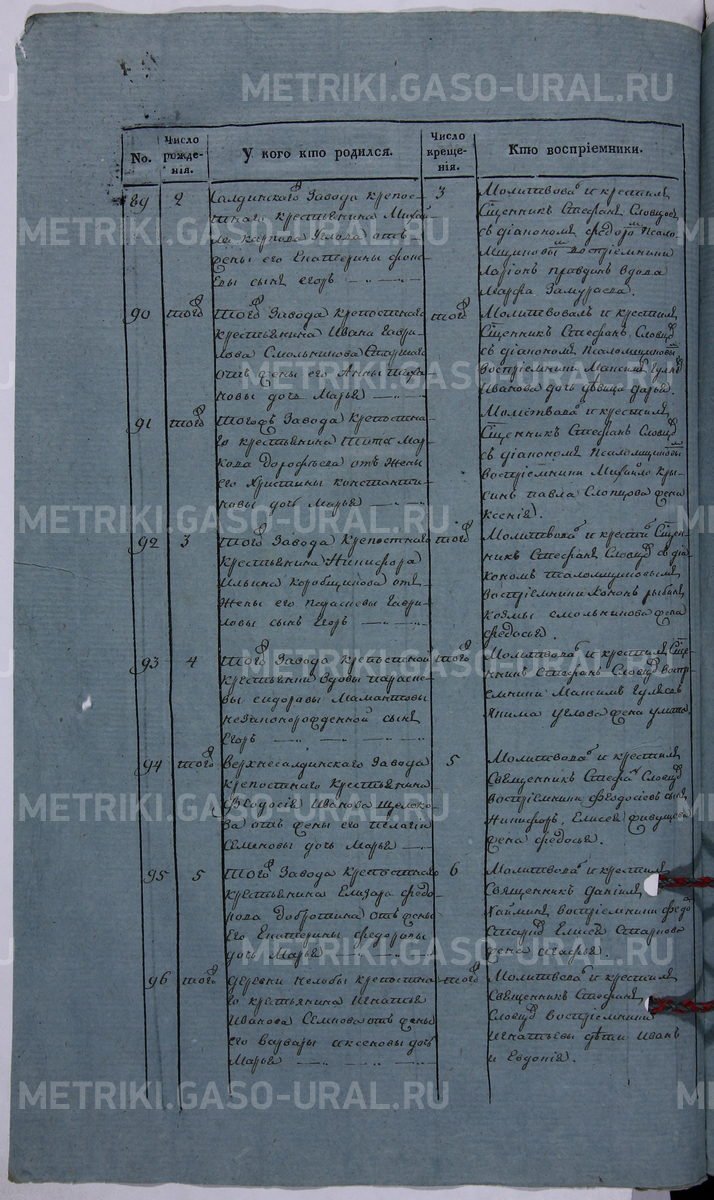 No.
Число рожденія.
У кого кто родился.
Число крещенія.
Кто воспріемники.
89
2
Салдинскаго Завода крепос-
тнаго крестьянина Михай-
ла Карпова Углова отъ
жены его Екатерины
сынъ Егоръ
3
Молитвовалъ и крестилъ
Сщенникъ Стефанъ Словцовъ
съ діакономъ
воспріемники
Ларіонъ вдова
Марфа Замураева.
90
того
того Завода крепостнаго
крестьянина Ивана Гаври-
лова Смольникова
отъ жены его Анны
дочь Марья
того
Молитвовалъ и крестилъ
Сщенникъ Стефанъ Словцовъ
съ діакономъ
воспріемники Максимъ Гуляевъ
Иванова дочь девица Дарья.
91
того
тогожъ Завода крепостна-
го крестьянина Тита Мар-
кова Дорофеева отъ жены
его Христины Константи-
новы дочь Марья
Молитвовалъ и крестилъ
Сщенникъ Стефанъ Словцовъ
съ діакономъ
воспріемники Михайло Кры-
синъ Павла Слопцова жена
Ксенія.
92
3
того Завода крепостнаго
крестьянина Никифора
Ильина Коробщикова отъ
жены его Парасковьи Гаври-
ловы сынъ Егоръ
того
Молитвовалъ и крестилъ Сщен-
никъ Стефанъ Словцовъ съ діа-
кономъ
воспріемники Кононъ
Козмы Смольникова жена
Федосья.
93
4
того Завода крепостной
крестьянки вдовы Параско-
вьи Сидоровы Мамантовы
незаконорожденной сынъ
Егоръ
того
Молитвовалъ и крестилъ Сще-
нникъ Стефанъ Словцовъ воспр-
іемники Максимъ Гуляевъ
Якима Углова жена Улита.
94
того
Верхнесалдинскаго Завода
крепостнаго крестьянина
Феодосія Иванова Щелоко-
ва отъ жены его Пелагіи
Семеновы дочь Марья
5
Молитвовалъ и крестилъ
Священникъ Стефанъ Словцовъ
воспріемники Феодосіевъ сынъ
Никифоръ, Елисея
жена Федосья.
95
5
того Завода крепостнаго
крестьянина Елизара Федо-
рова отъ жены
его Екатерины Федоровы
дочь Марья
6
Молитвовалъ и крестилъ
Священникъ Даніилъ
воспріемники
Елисея Старкова
жена Агафья.
96
того
деревни Нелобы крепостна-
го крестьянина Игнатья
Иванова отъ жены
его Варвары Аксеновы дочь
Марья
того
Молитвовалъ и крестилъ
Священникъ Стефанъ
Словцовъ воспріемники
Игнатьевы дети Иванъ
и Евдокія.
METRIKI.GASO-URAL.RU